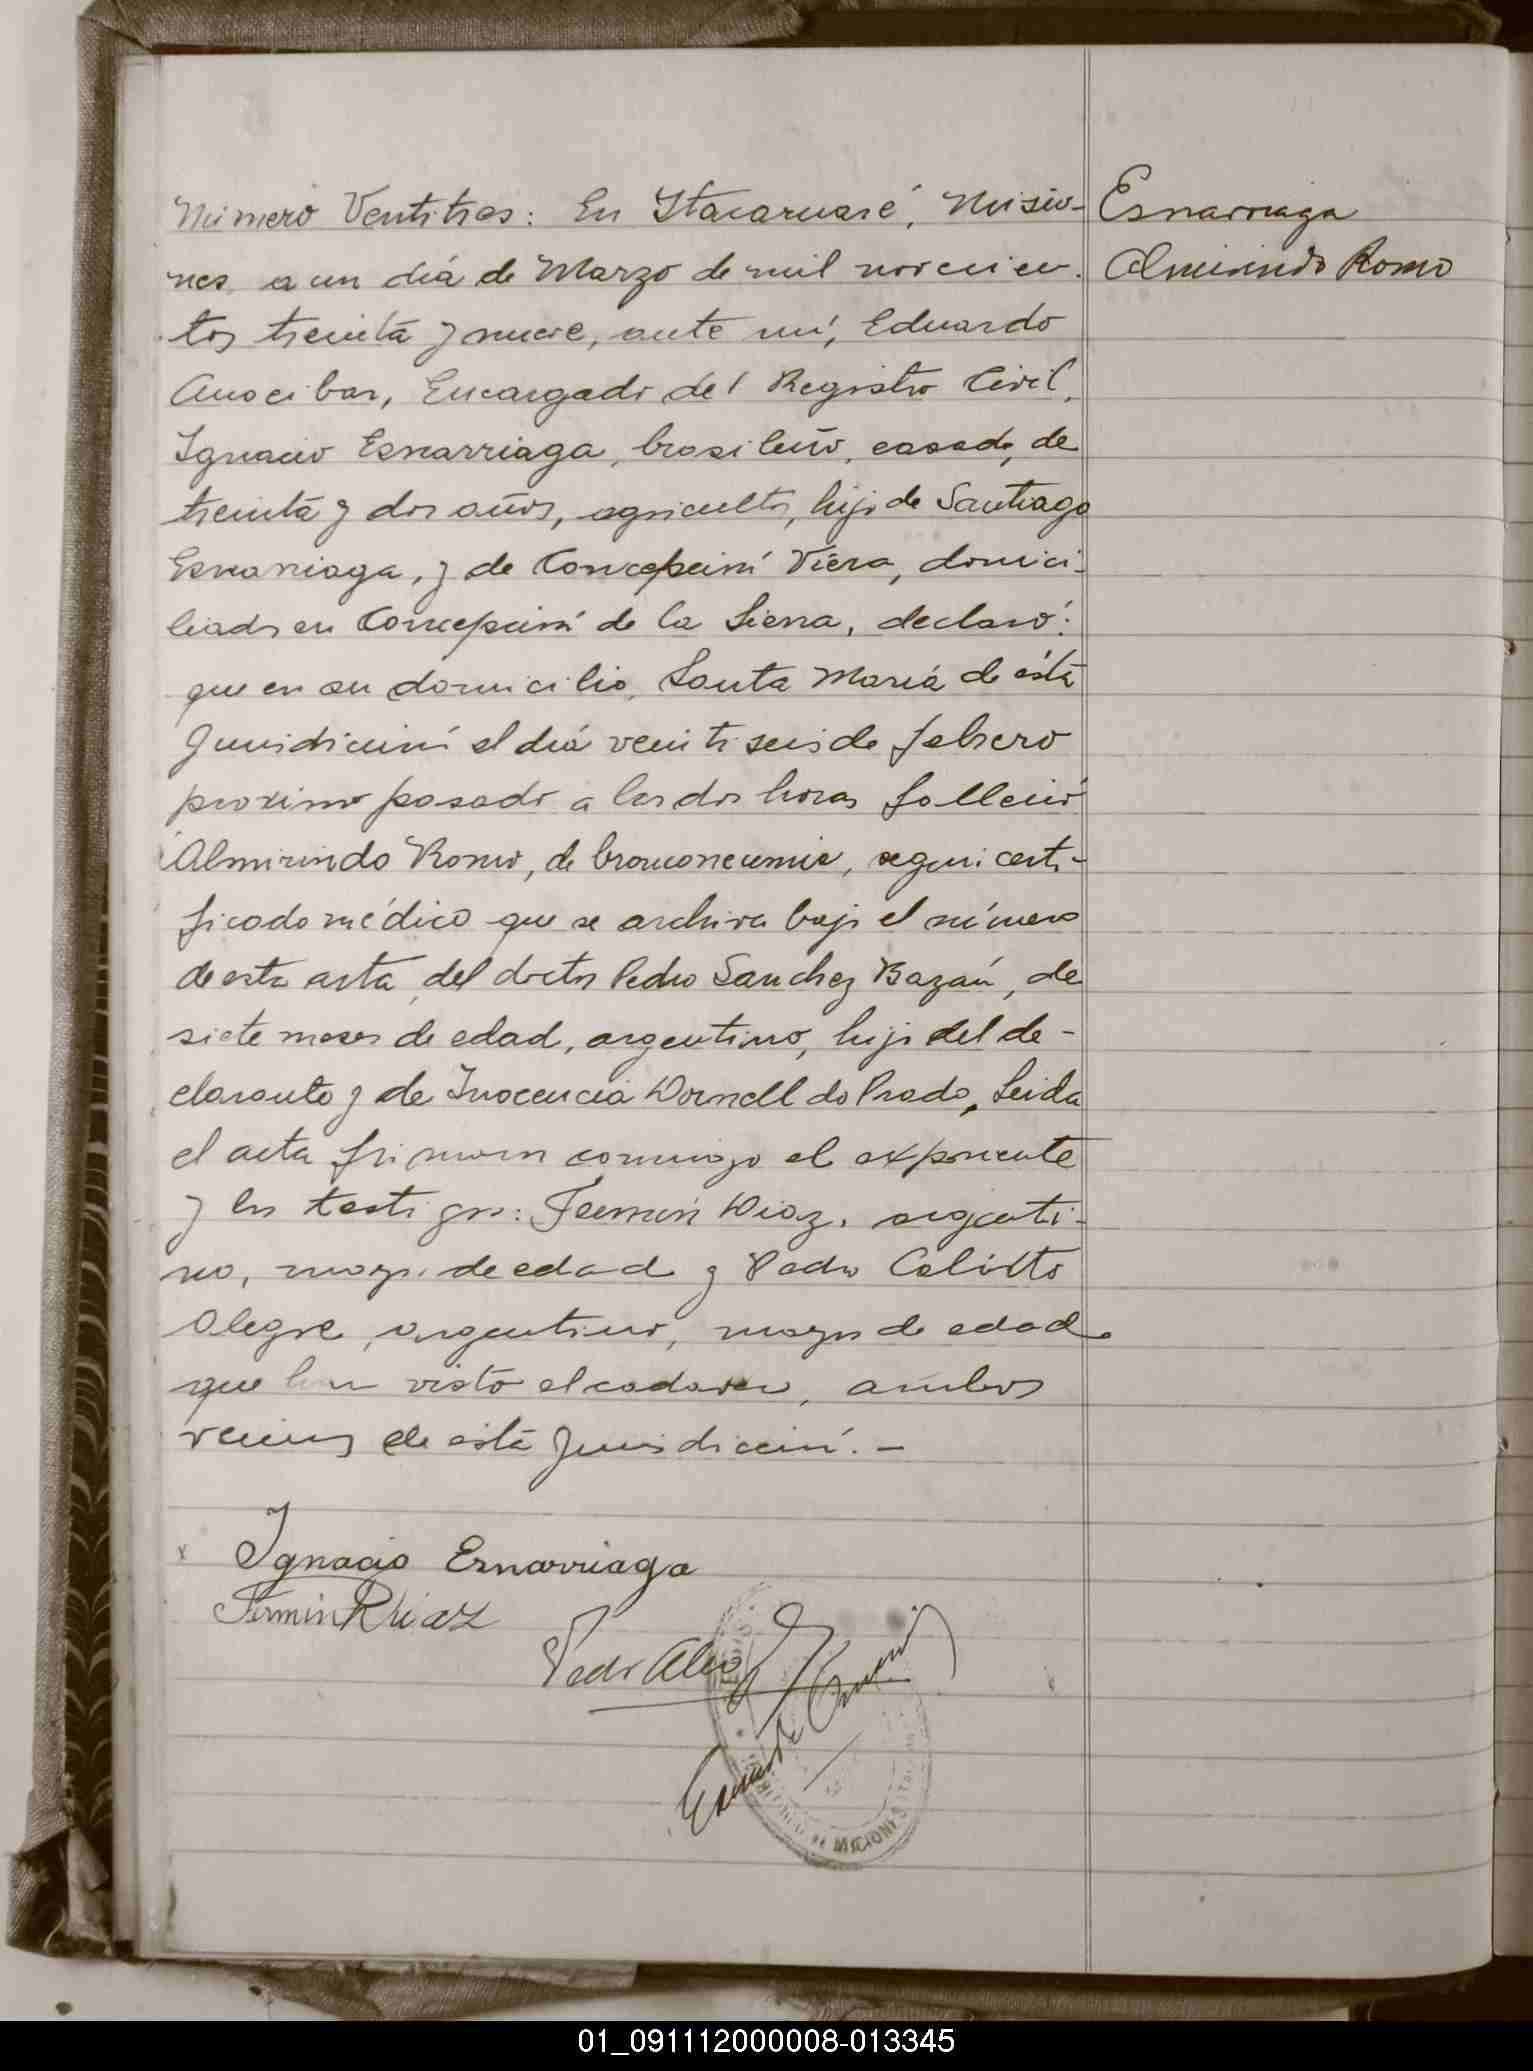 Número Ventitres: En Itacaruaré, Misio-
nes a un día de Marzo de mil novecien-
tos treinta y nueve, ante mí, Eduardo
Anocibar, Encargado del Registro Civil,
Ignacio Esnarriaga, brasileño, casado, de
treinta y dos años, agricultor, hijo de Santiago
Esnarriaga, y de Concepción Viera, domici-
liado en Concepción de la Sierra, declaró:
que en su domicilio, Santa María de ésta
Jurisdicción el día veintiseis de febrero
proximo pasado a las dos horas falleció
Almirindo Romo, de bronconeumia, según certi-
ficado médico que se archiva bajo el número
de esta acta, del doctor Pedro Sanchez Bazán, de
siete meses de edad, argentino, hijo del de-
clarante y de Inocencia Dornell do Prado, Leida
el acta firmaron conmigo el exponente
y los testigos: Fermín Diaz, argenti-
no, mayor de edad y Pedro Calixto
Alegre, argentino, mayor de edad
que han visto el cadaver, ambos
vecinos de ésta Jurisdicción. -
Esnarriaga
Almirindo Romo
x Ignacio Esnarriaga
Fermin R Diaz
Pedro Aleg
Eduardo
MISIONES
01_091112000008-013345